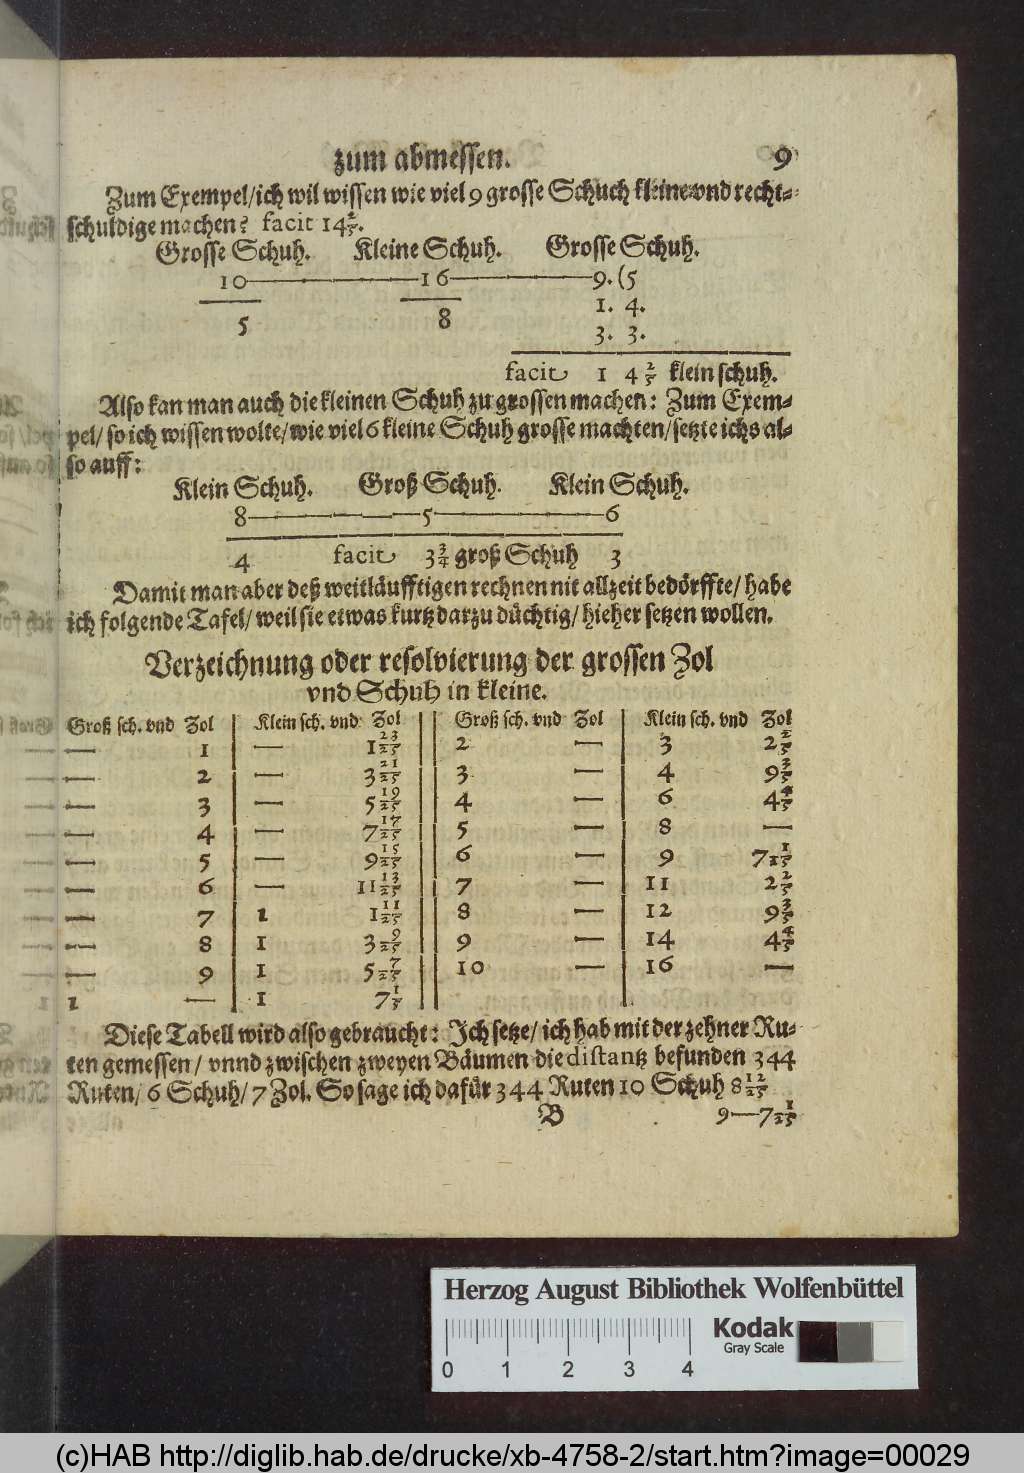 zum abmessen. 9
Zum Exempel/ich wil wissen wie viel 9 grosse Schuch kleine vnd recht-
schuldige machen? facit 14 2/5.
Grosse Schuh. Kleine Schuh. Grosse Schuh.
10——16——9. (5
1. 4.
5 8
3. 3.
facit 1 4 2/5 klein schuh.
Also kan man auch die kleinen Schuh zu grossen machen: Zum Exem-
pel/ so ich wissen wolte/wie viel 6 kleine Schuh grosse machten/setzte ichs al-
so auff:
Klein Schuh. Groß Schuh. Klein Schuh.
8——5——6
4 facit 3 3/4 groß Schuh 3
Damit man aber deß weitläufftigen rechnen nit allzeit bedörffte/ habe
ich folgende Tafel/ weil sie etwas kurtz darzu düchtig/ hieher setzen wollen.
Verzeichnung oder resolvierung der grossen Zol
vnd Schuh in kleine.
Groß sch. vnd Zol | Klein sch. vnd Zol || Groß sch. vnd Zol | Klein sch. vnd Zol
— 1 | — 1 23/25 || 2 — | 3 2 2/5
— 2 | — 3 21/25 || 3 — | 4 9 3/5
— 3 | — 5 19/25 || 4 — | 6 4 4/5
— 4 | — 7 17/25 || 5 — | 8 —
— 5 | — 9 15/25 || 6 — | 9 7 1/15
— 6 | — 11 13/25 || 7 — | 11 2 2/5
— 7 | 1 1 11/25 || 8 — | 12 9 3/5
— 8 | 1 3 9/25 || 9 — | 14 4 4/5
— 9 | 1 5 7/25 || 10 — | 16 —
1 — | 1 7 1/5 ||
Diese Tabell wird also gebraucht: Ich setze/ ich hab mit der zehner Ru-
ten gemessen/ vnnd zwischen zweyen Bäumen die distantz befunden 344
Ruten/ 6 Schuh/ 7 Zol. So sage ich dafür 344 Ruten 10 Schuh 8 12/25
B 9—7 1/25
Herzog August Bibliothek Wolfenbüttel
Kodak
Gray Scale
0 1 2 3 4
(c)HAB http://diglib.hab.de/drucke/xb-4758-2/start.htm?image=00029